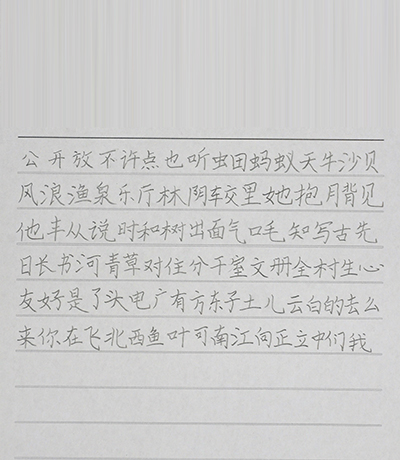 公开放不许点也听虫田蚂蚁天牛沙贝
风浪渔泉乐厅林阴较里她抱月背见
他丰从说时和树出面气口毛知写古先
日长书河青草对住分干室文册全村生心
友好是了头电广有方东子土儿云白的去么
来你在飞北西鱼叶可南江向正立中们我